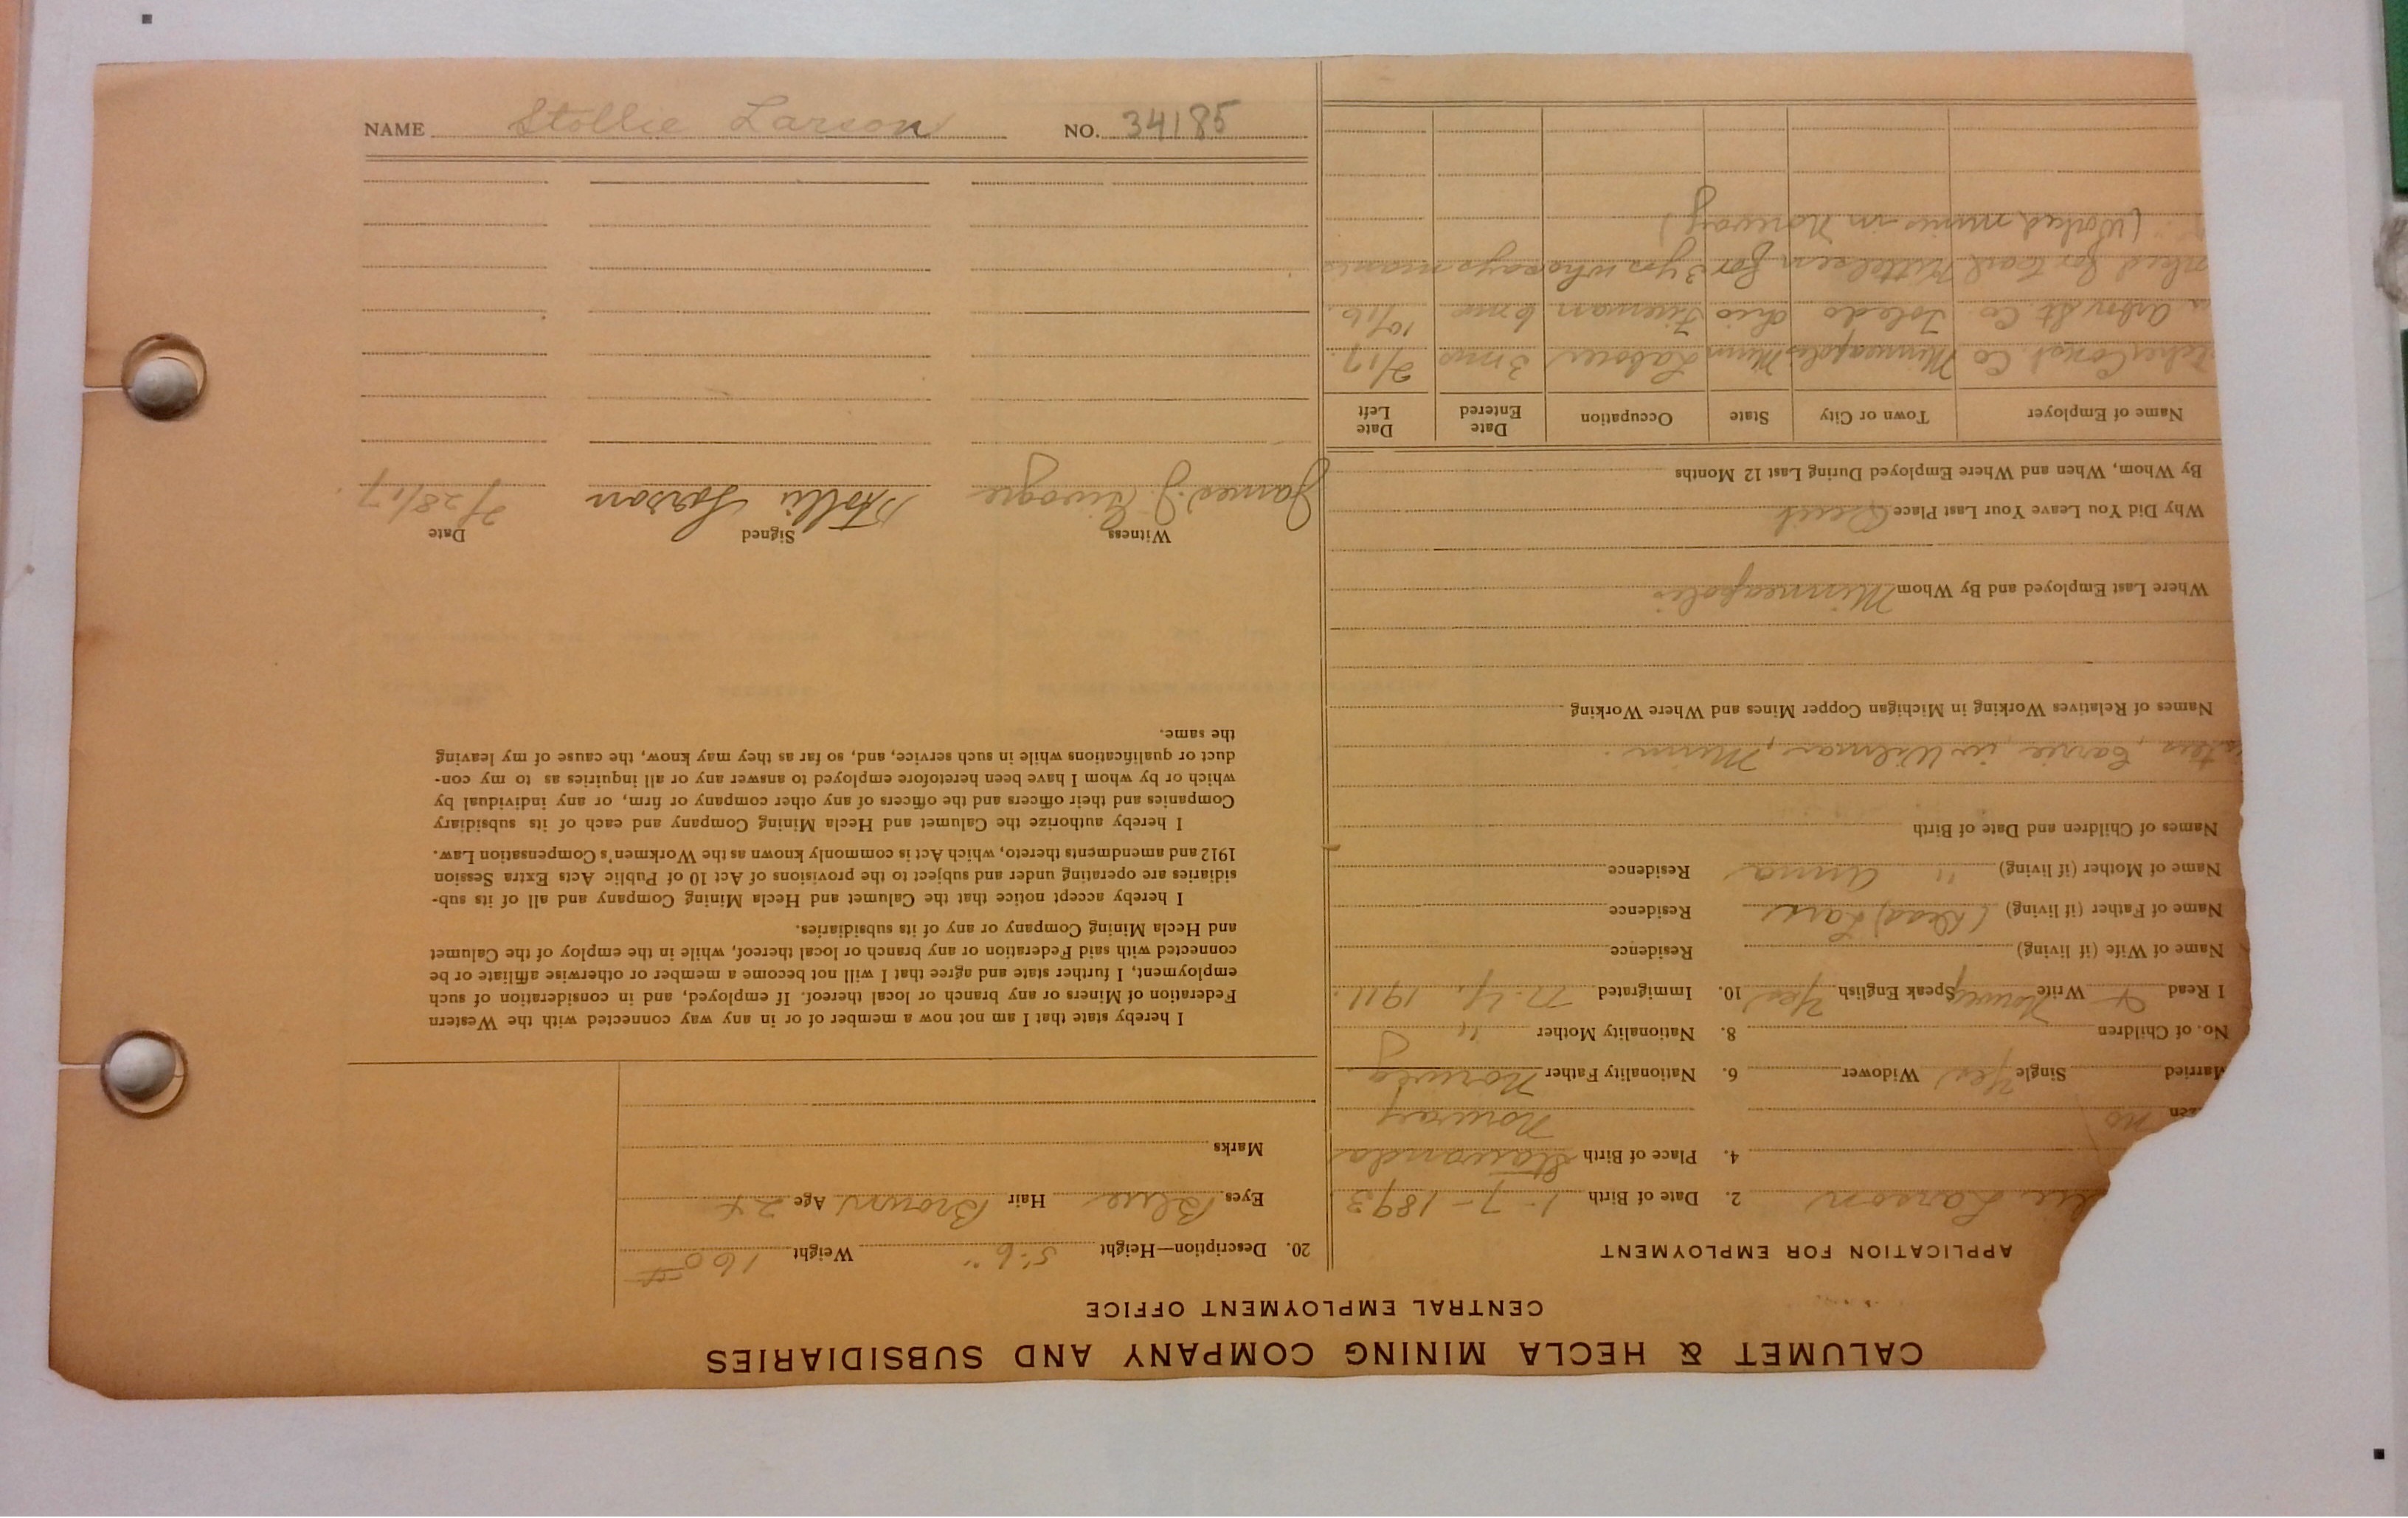 NAME Stollie Larson NO. 34185
CALUMET & HECLA MINING COMPANY AND SUBSIDIARIES
CENTRAL EMPLOYMENT OFFICE
APPLICATION FOR EMPLOYMENT
Larson 2. Date of Birth 1-7-1893
4. Place of Birth
no Norway
Married Single Yes Widower 6. Nationality Father Norweg
No. of Children 8. Nationality Mother "
I Read & Write Norweg Speak English Yes 10. Immigrated N.Y. 1911.
Name of Wife (if living) Residence
Name of Father (if living) (Dead) Lars Residence
Name of Mother (if living) " Anna Residence
Names of Children and Date of Birth
Carrie, in Wilmar, Minn.
Names of Relatives Working in Michigan Copper Mines and Where Working
Where Last Employed and By Whom Minneapolis
Why Did You Leave Your Last Place Quit
By Whom, When and Where Employed During Last 12 Months
Name of Employer Town or City State Occupation Date Entered Date Left
Const. Co Minneapolis Minn Laborer 3 mos 2/17.
Co. Toledo Ohio Fireman 6 mos 10/16.
for Carl Kittelsen for 3 yrs who says
(Worked mines in Norway)
20. Description—Height 5'6" Weight 160#
Eyes Blue Hair Brown Age 24
Marks
I hereby state that I am not now a member of or in any way connected with the Western
Federation of Miners or any branch or local thereof. If employed, and in consideration of such
employment, I further state and agree that I will not become a member or otherwise affiliate or be
connected with said Federation or any branch or local thereof, while in the employ of the Calumet
and Hecla Mining Company or any of its subsidiaries.
I hereby accept notice that the Calumet and Hecla Mining Company and all of its sub-
sidiaries are operating under and subject to the provisions of Act 10 of Public Acts Extra Session
1912 and amendments thereto, which Act is commonly known as the Workmen's Compensation Law.
I hereby authorize the Calumet and Hecla Mining Company and each of its subsidiary
Companies and their officers and the officers of any other company or firm, or any individual by
which or by whom I have been heretofore employed to answer any or all inquiries as to my con-
duct or qualifications while in such service, and, so far as they may know, the cause of my leaving
the same.
Witness Signed Date
James J. Stollie Larson 2/28/17.